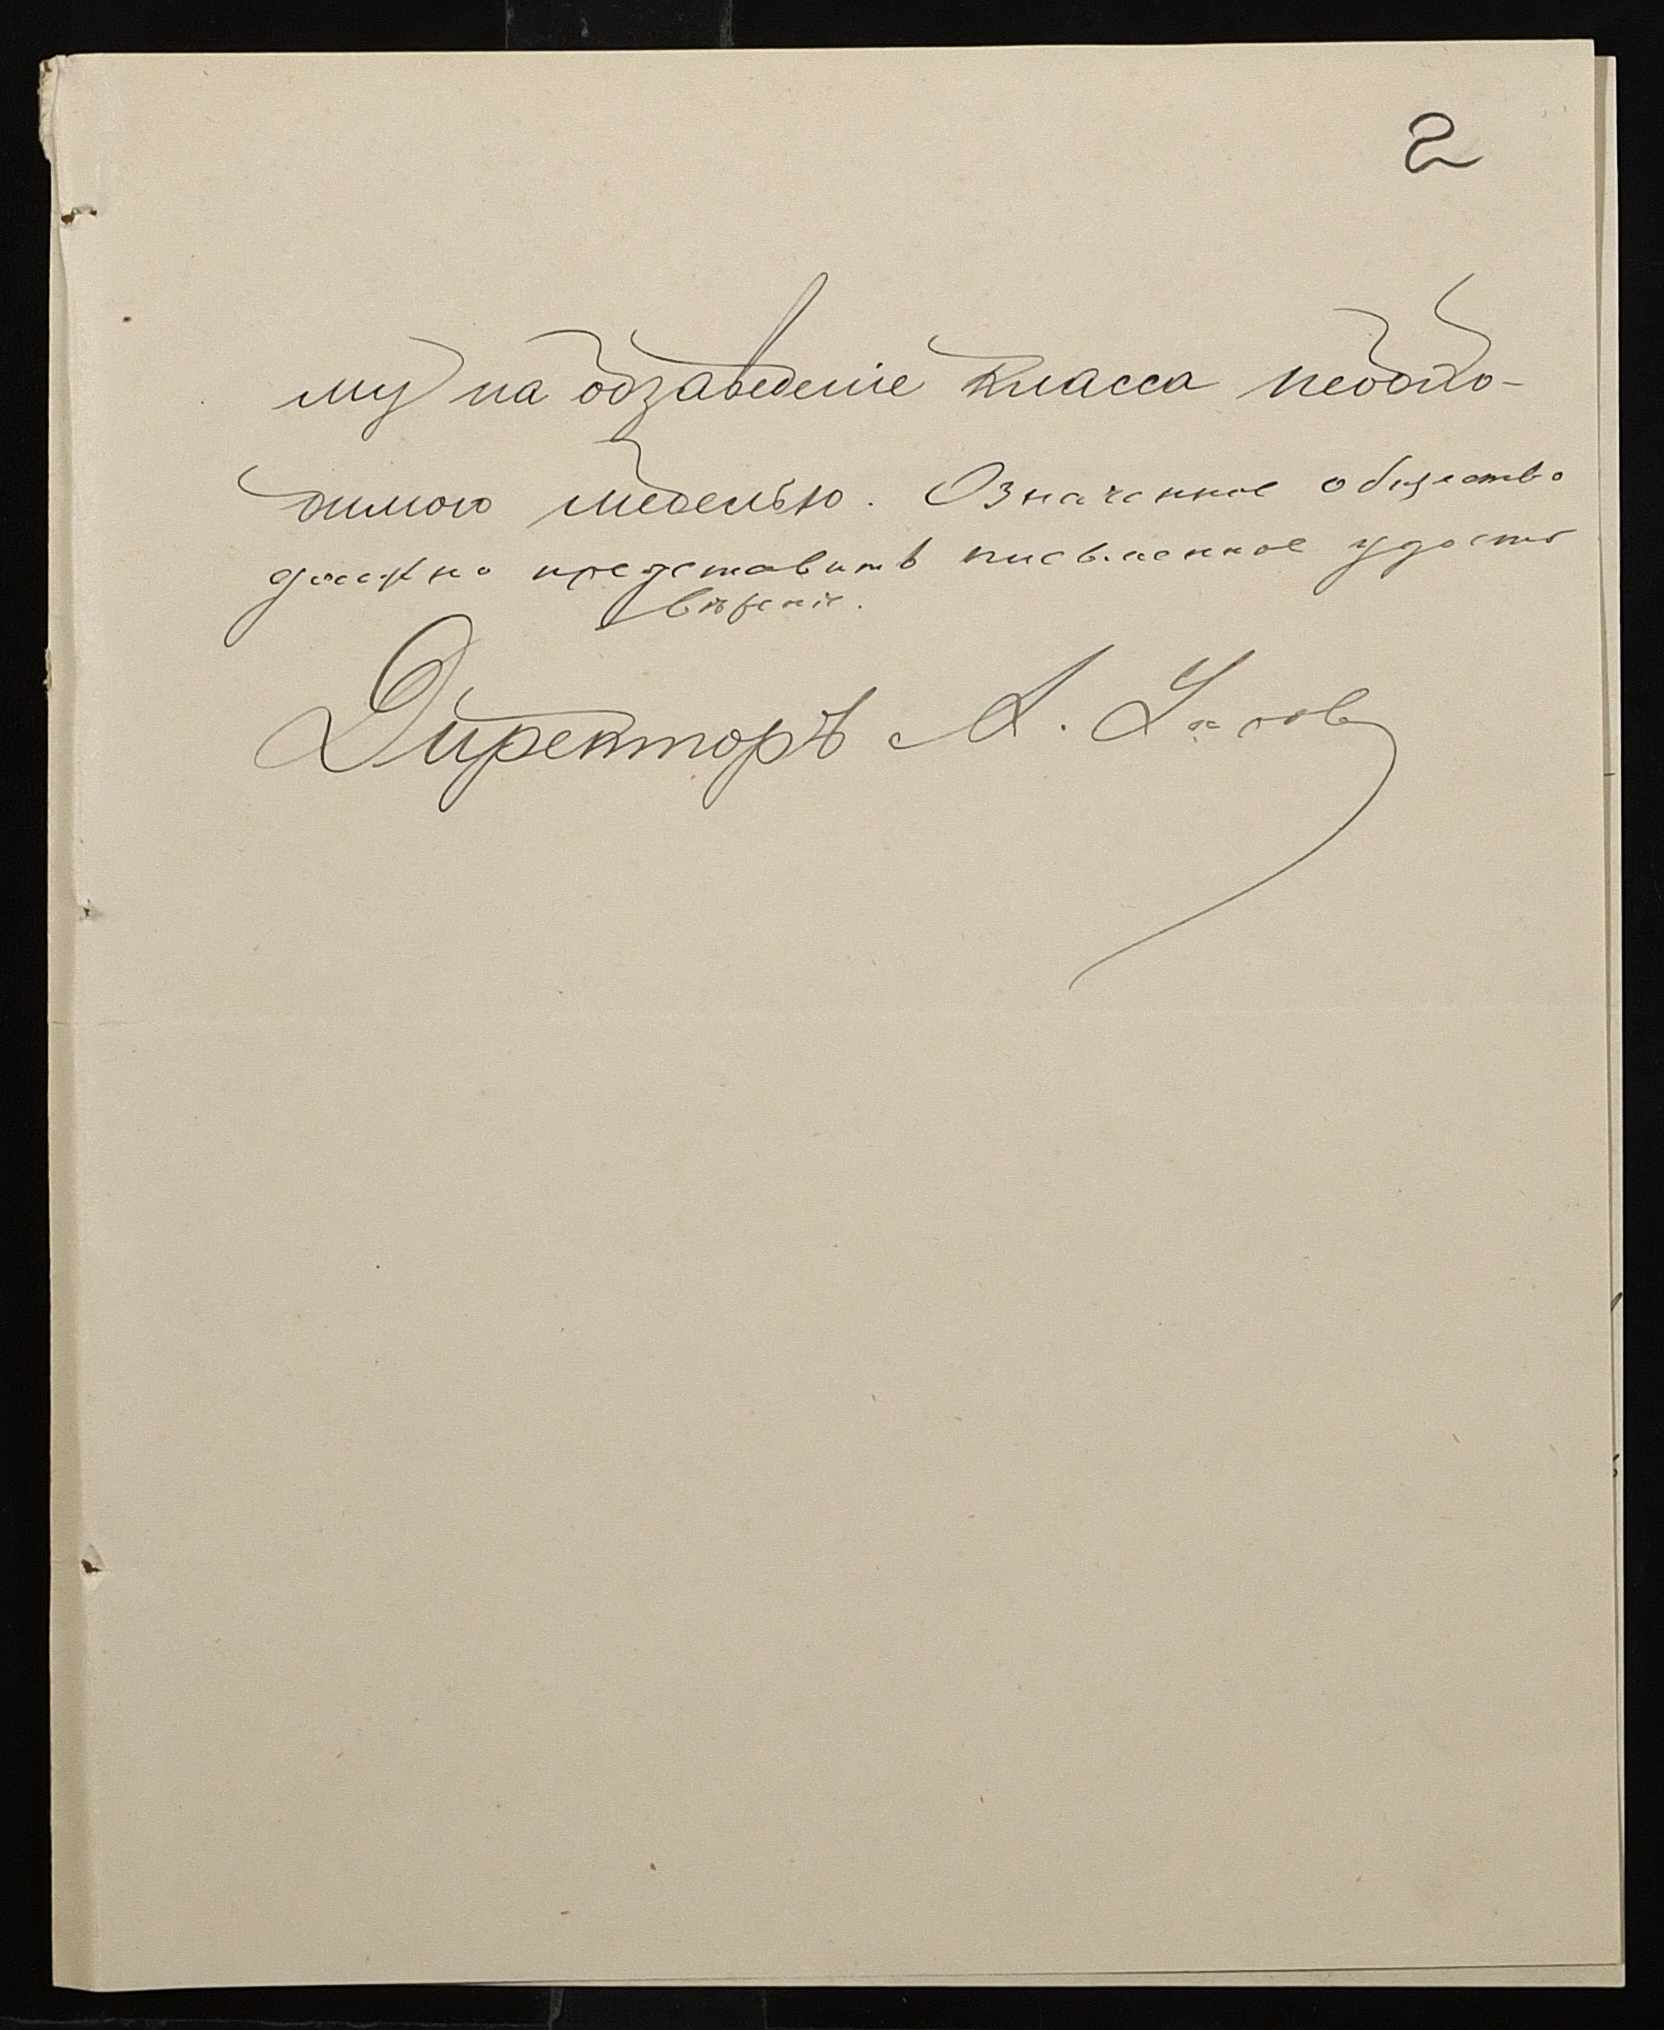 2
му на обзаведеніе класса необхо-
димою мебелью. Означенное общество
должно представить письменное удосто
вѣреніе.
Директоръ А.